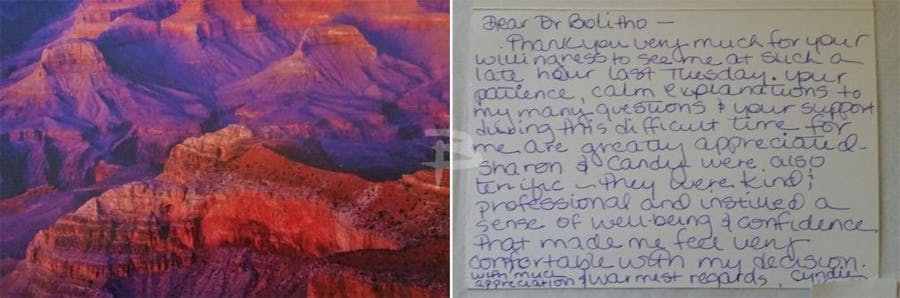 Dear Dr Bolitho —
Thank you very much for your
willingness to see me at such a
late hour last Tuesday. Your
patience, calm explanations to
my many questions & your support
during this difficult time for
me are greatly appreciated.
Sharon & Candy were also
terrific — they were kind,
professional and instilled a
sense of well-being & confidence
that made me feel very
comfortable with my decision.
with much
appreciation & warmest regards, Cyndie